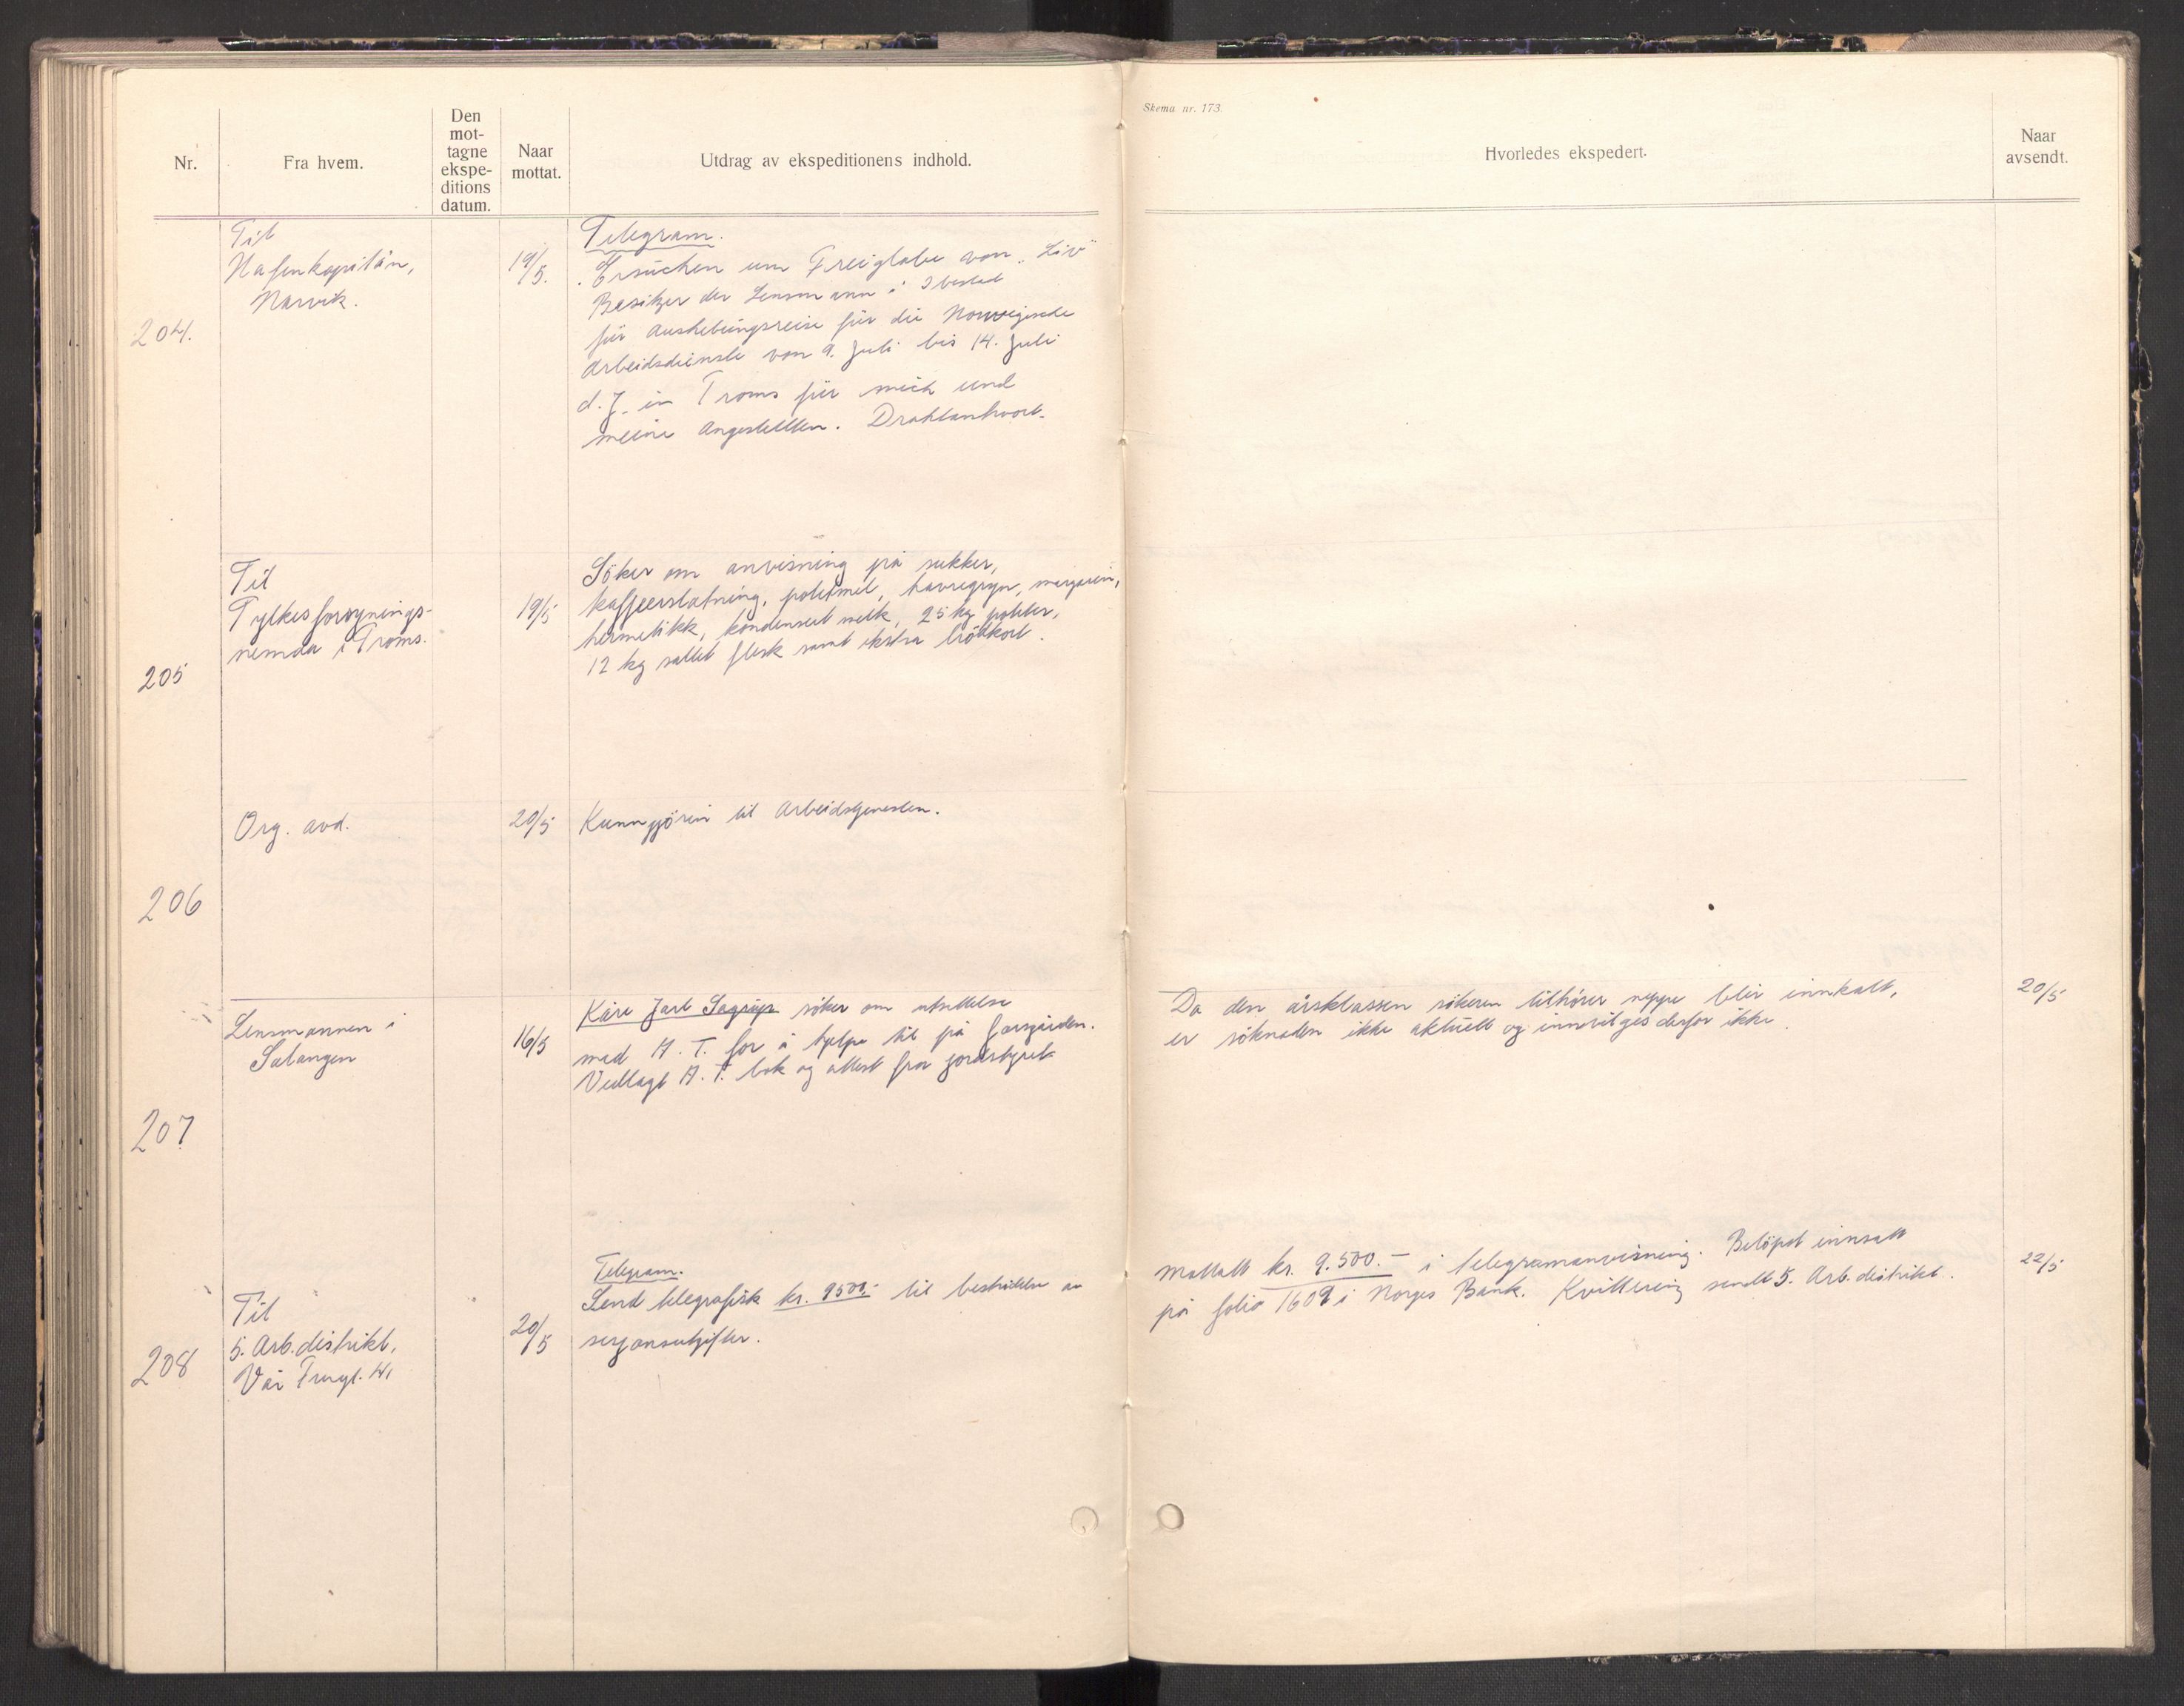 Skema nr. 173.
Nr.
Fra hvem.
Den
mot-
tagne
ekspe-
ditions
datum.
Naar
mottat.
Utdrag av ekspeditionens indhold.
Hvorledes ekspedert.
Naar
avsendt.
204.
Til
Hafenkapitän,
Narvik.
19/5.
Telegram.
"Ersuchen um Freiglabe von "Liv"
Besitzer der Lensmann i Ibestad
für Aushebungsreise für die Norwegische
Arbeidsdienste von 9. Juli bis 14. Juli
d. J. in Troms für mich und
meine Angestellten. Drahtantwort.
205
Til
Fylkesforsynings-
nemda i Troms.
19/5
Söker om anvisning på sukker,
kaffeerstatning, potetmel, havregryn, margarin,
hermetikk, kondensert melk, 25 kg poteter,
12 kg saltet flesk samt ekstra brödkort.
206
Org. avd.
20/5
Kunngjörin til Arbeidstjenesten.
207
Lensmannen i
Salangen
16/5
Kåre Jarl søker om utsettelse
med A. T. for å hjelpe til på farsgården.
Vedlagt A. T. bok og attest fra jordstyret
Da den årsklassen sökeren tilhører neppe blir innkalt,
er söknaden ikke aktuell og innvilges derfor ikke.
20/5
208
Til
5. Arb. distrikt,
Vår
20/5
Telegram.
Send telegrafisk kr. 9500.- til bestridelse av
sesjonsutgifter.
Mottatt kr. 9.500.- i telegramanvisning. Belöpet innsatt
på folio 1609 i Norges Bank. Kvittering sendt 5. Arb. distrikt.
22/5